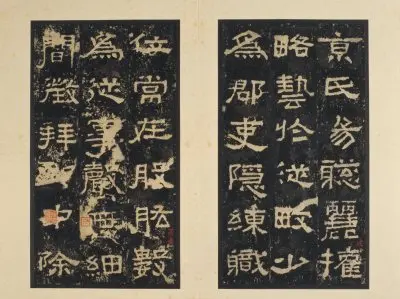 京氏易聰麗權
略藝於從畋少
為郡吏隱練職
位常在股肱數
為從事聲無細
聞徵拜郎中除